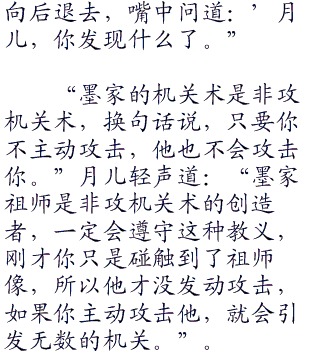 向后退去，嘴中问道：’月
儿，你发现什么了。”
“墨家的机关术是非攻
机关术，换句话说，只要你
不主动攻击，他也不会攻击
你。”月儿轻声道：“墨家
祖师是非攻机关术的创造
者，一定会遵守这种教义，
刚才你只是碰触到了祖师
像，所以他才没发动攻击，
如果你主动攻击他，就会引
发无数的机关。”。